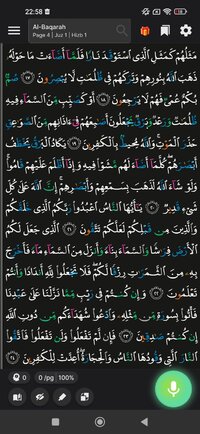 22:58
18
Al-Baqarah
Page 4 | Juz 1 | Hizb 1
مَثَلُهُمْ كَمَثَلِ ٱلَّذِى ٱسْتَوْقَدَ نَارًا فَلَمَّآ أَضَآءَتْ مَا حَوْلَهُۥ
ذَهَبَ ٱللَّهُ بِنُورِهِمْ وَتَرَكَهُمْ فِى ظُلُمَـٰتٍ لَّا يُبْصِرُونَ ١٧ صُمٌّۢ
بُكْمٌ عُمْىٌ فَهُمْ لَا يَرْجِعُونَ ١٨ أَوْ كَصَيِّبٍ مِّنَ ٱلسَّمَآءِ فِيهِ
ظُلُمَـٰتٌ وَرَعْدٌ وَبَرْقٌ يَجْعَلُونَ أَصَـٰبِعَهُمْ فِىٓ ءَاذَانِهِم مِّنَ ٱلصَّوَٰعِقِ
حَذَرَ ٱلْمَوْتِ ۚ وَٱللَّهُ مُحِيطٌۢ بِٱلْكَـٰفِرِينَ ١٩ يَكَادُ ٱلْبَرْقُ يَخْطَفُ
أَبْصَـٰرَهُمْ ۖ كُلَّمَآ أَضَآءَ لَهُم مَّشَوْا۟ فِيهِ وَإِذَآ أَظْلَمَ عَلَيْهِمْ قَامُوا۟ ۚ
وَلَوْ شَآءَ ٱللَّهُ لَذَهَبَ بِسَمْعِهِمْ وَأَبْصَـٰرِهِمْ ۚ إِنَّ ٱللَّهَ عَلَىٰ كُلِّ
شَىْءٍ قَدِيرٌ ٢٠ يَـٰٓأَيُّهَا ٱلنَّاسُ ٱعْبُدُوا۟ رَبَّكُمُ ٱلَّذِى خَلَقَكُمْ
وَٱلَّذِينَ مِن قَبْلِكُمْ لَعَلَّكُمْ تَتَّقُونَ ٢١ ٱلَّذِى جَعَلَ لَكُمُ
ٱلْأَرْضَ فِرَٰشًا وَٱلسَّمَآءَ بِنَآءً وَأَنزَلَ مِنَ ٱلسَّمَآءِ مَآءً فَأَخْرَجَ
بِهِۦ مِنَ ٱلثَّمَرَٰتِ رِزْقًا لَّكُمْ ۖ فَلَا تَجْعَلُوا۟ لِلَّهِ أَندَادًا وَأَنتُمْ
تَعْلَمُونَ ٢٢ وَإِن كُنتُمْ فِى رَيْبٍ مِّمَّا نَزَّلْنَا عَلَىٰ عَبْدِنَا
فَأْتُوا۟ بِسُورَةٍ مِّن مِّثْلِهِۦ وَٱدْعُوا۟ شُهَدَآءَكُم مِّن دُونِ ٱللَّهِ
إِن كُنتُمْ صَـٰدِقِينَ ٢٣ فَإِن لَّمْ تَفْعَلُوا۟ وَلَن تَفْعَلُوا۟ فَٱتَّقُوا۟
ٱلنَّارَ ٱلَّتِى وَقُودُهَا ٱلنَّاسُ وَٱلْحِجَارَةُ ۖ أُعِدَّتْ لِلْكَـٰفِرِينَ ٢٤
0 0 /pg 100%